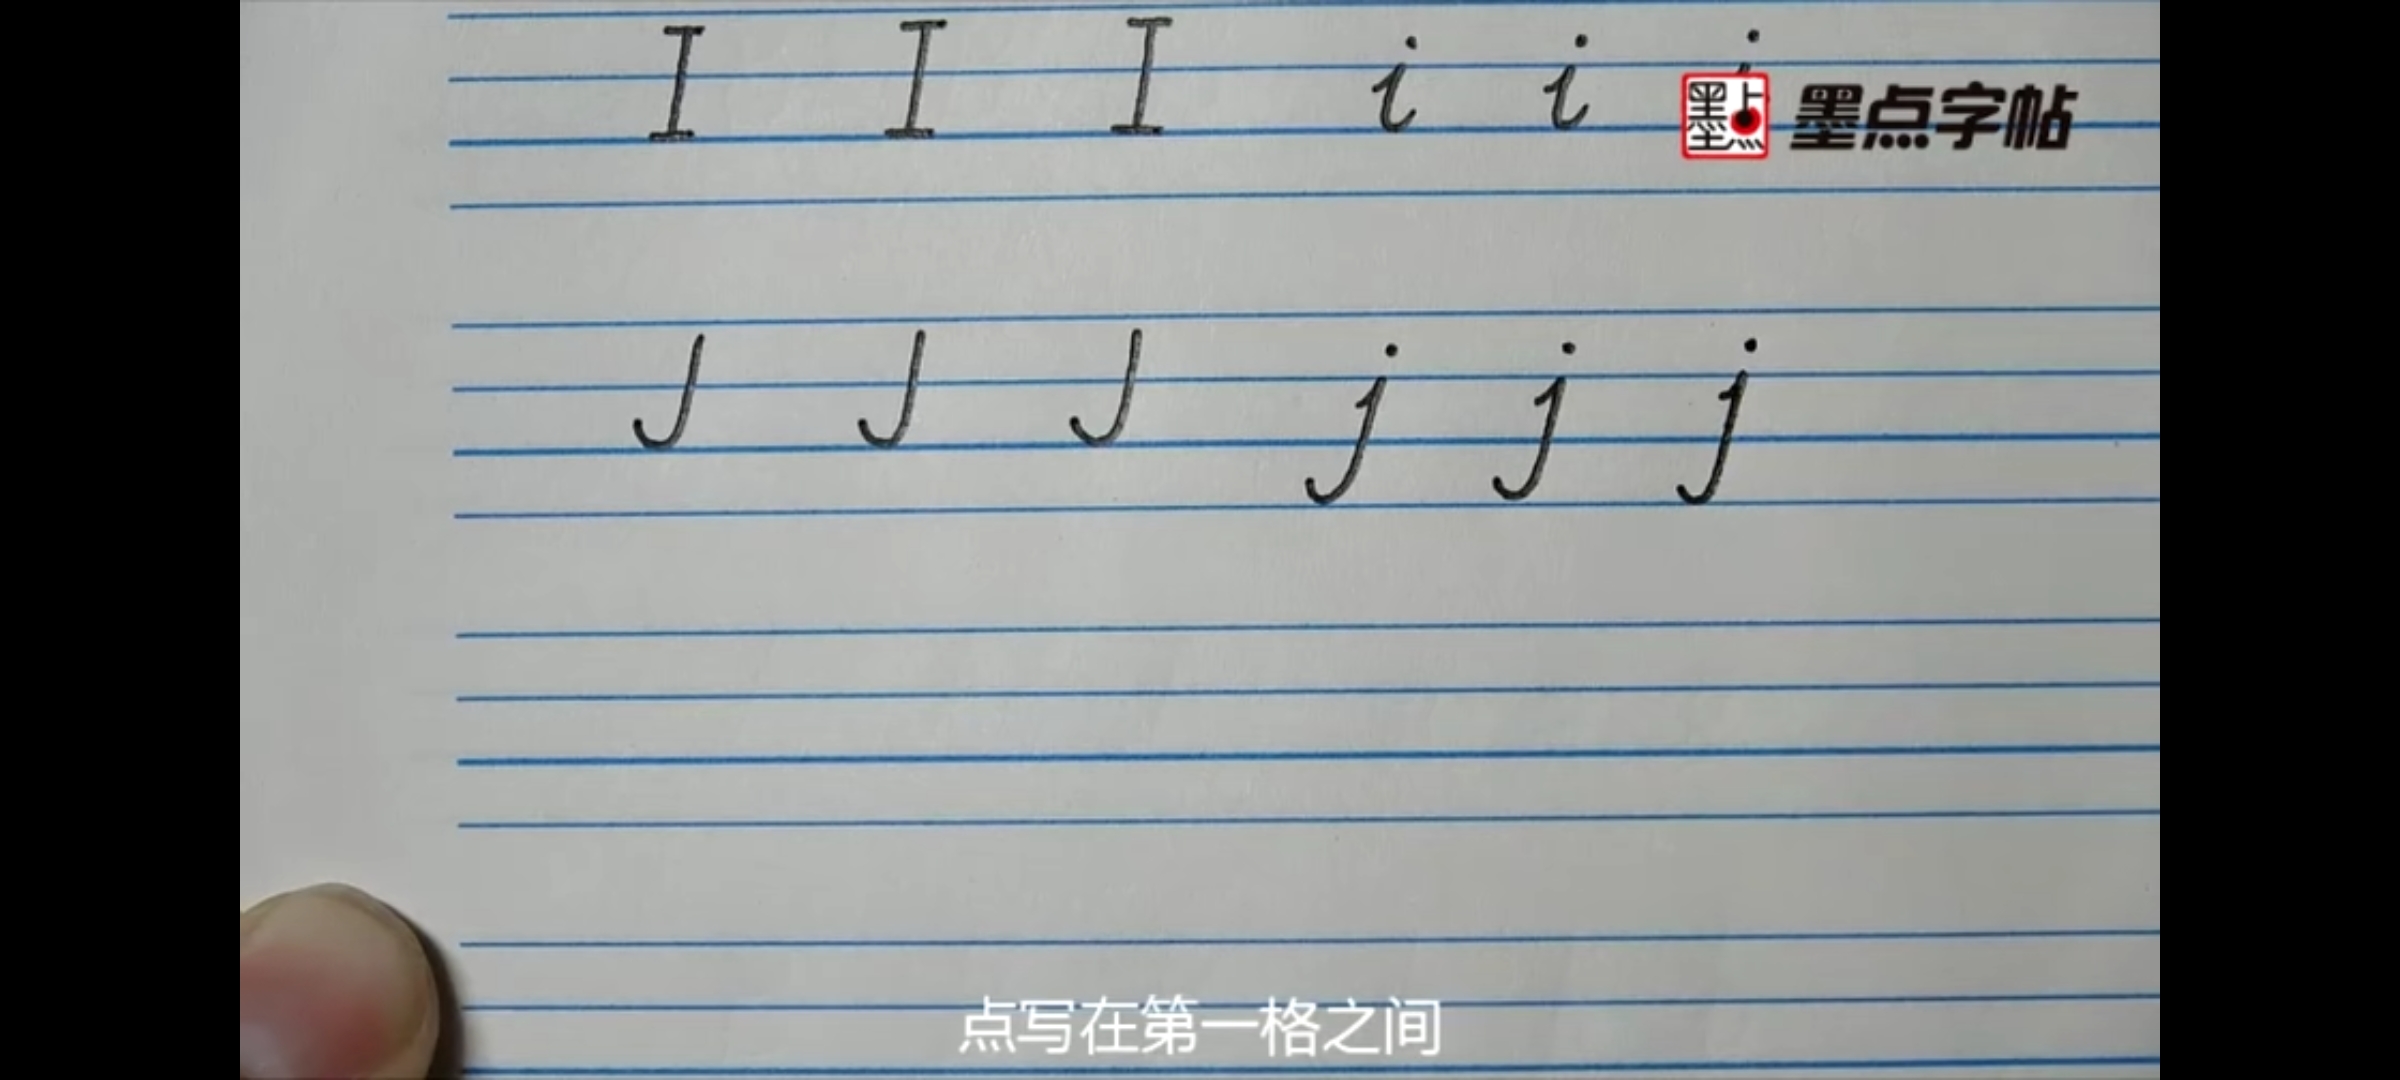 I I I i i i
墨点 墨点字帖
J J J j j j
点写在第一格之间